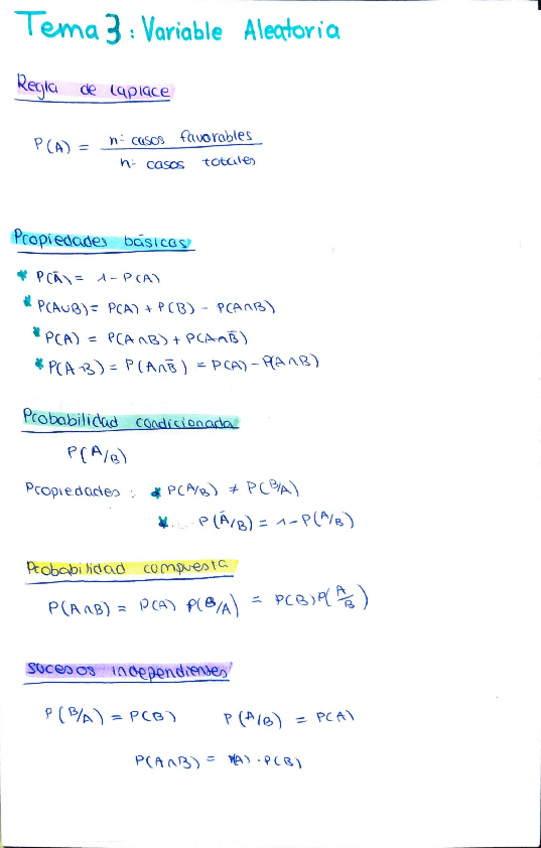 Tema 3: Variable Aleatoria
Regla de Laplace
P(A) = nº casos favorables / nº casos totales
Propiedades básicas
* P(Ā) = 1 - P(A)
* P(A∪B) = P(A) + P(B) - P(A∩B)
* P(A) = P(A∩B) + P(A∩B̄)
* P(A-B) = P(A∩B̄) = P(A) - P(A∩B)
Probabilidad condicionada
P(A/B)
Propiedades: * P(A/B) ≠ P(B/A)
* P(Ā/B) = 1 - P(A/B)
Probabilidad compuesta
P(A∩B) = P(A) P(B/A) = P(B) P(A/B)
sucesos independientes
P(B/A) = P(B) P(A/B) = P(A)
P(A∩B) = P(A) · P(B)